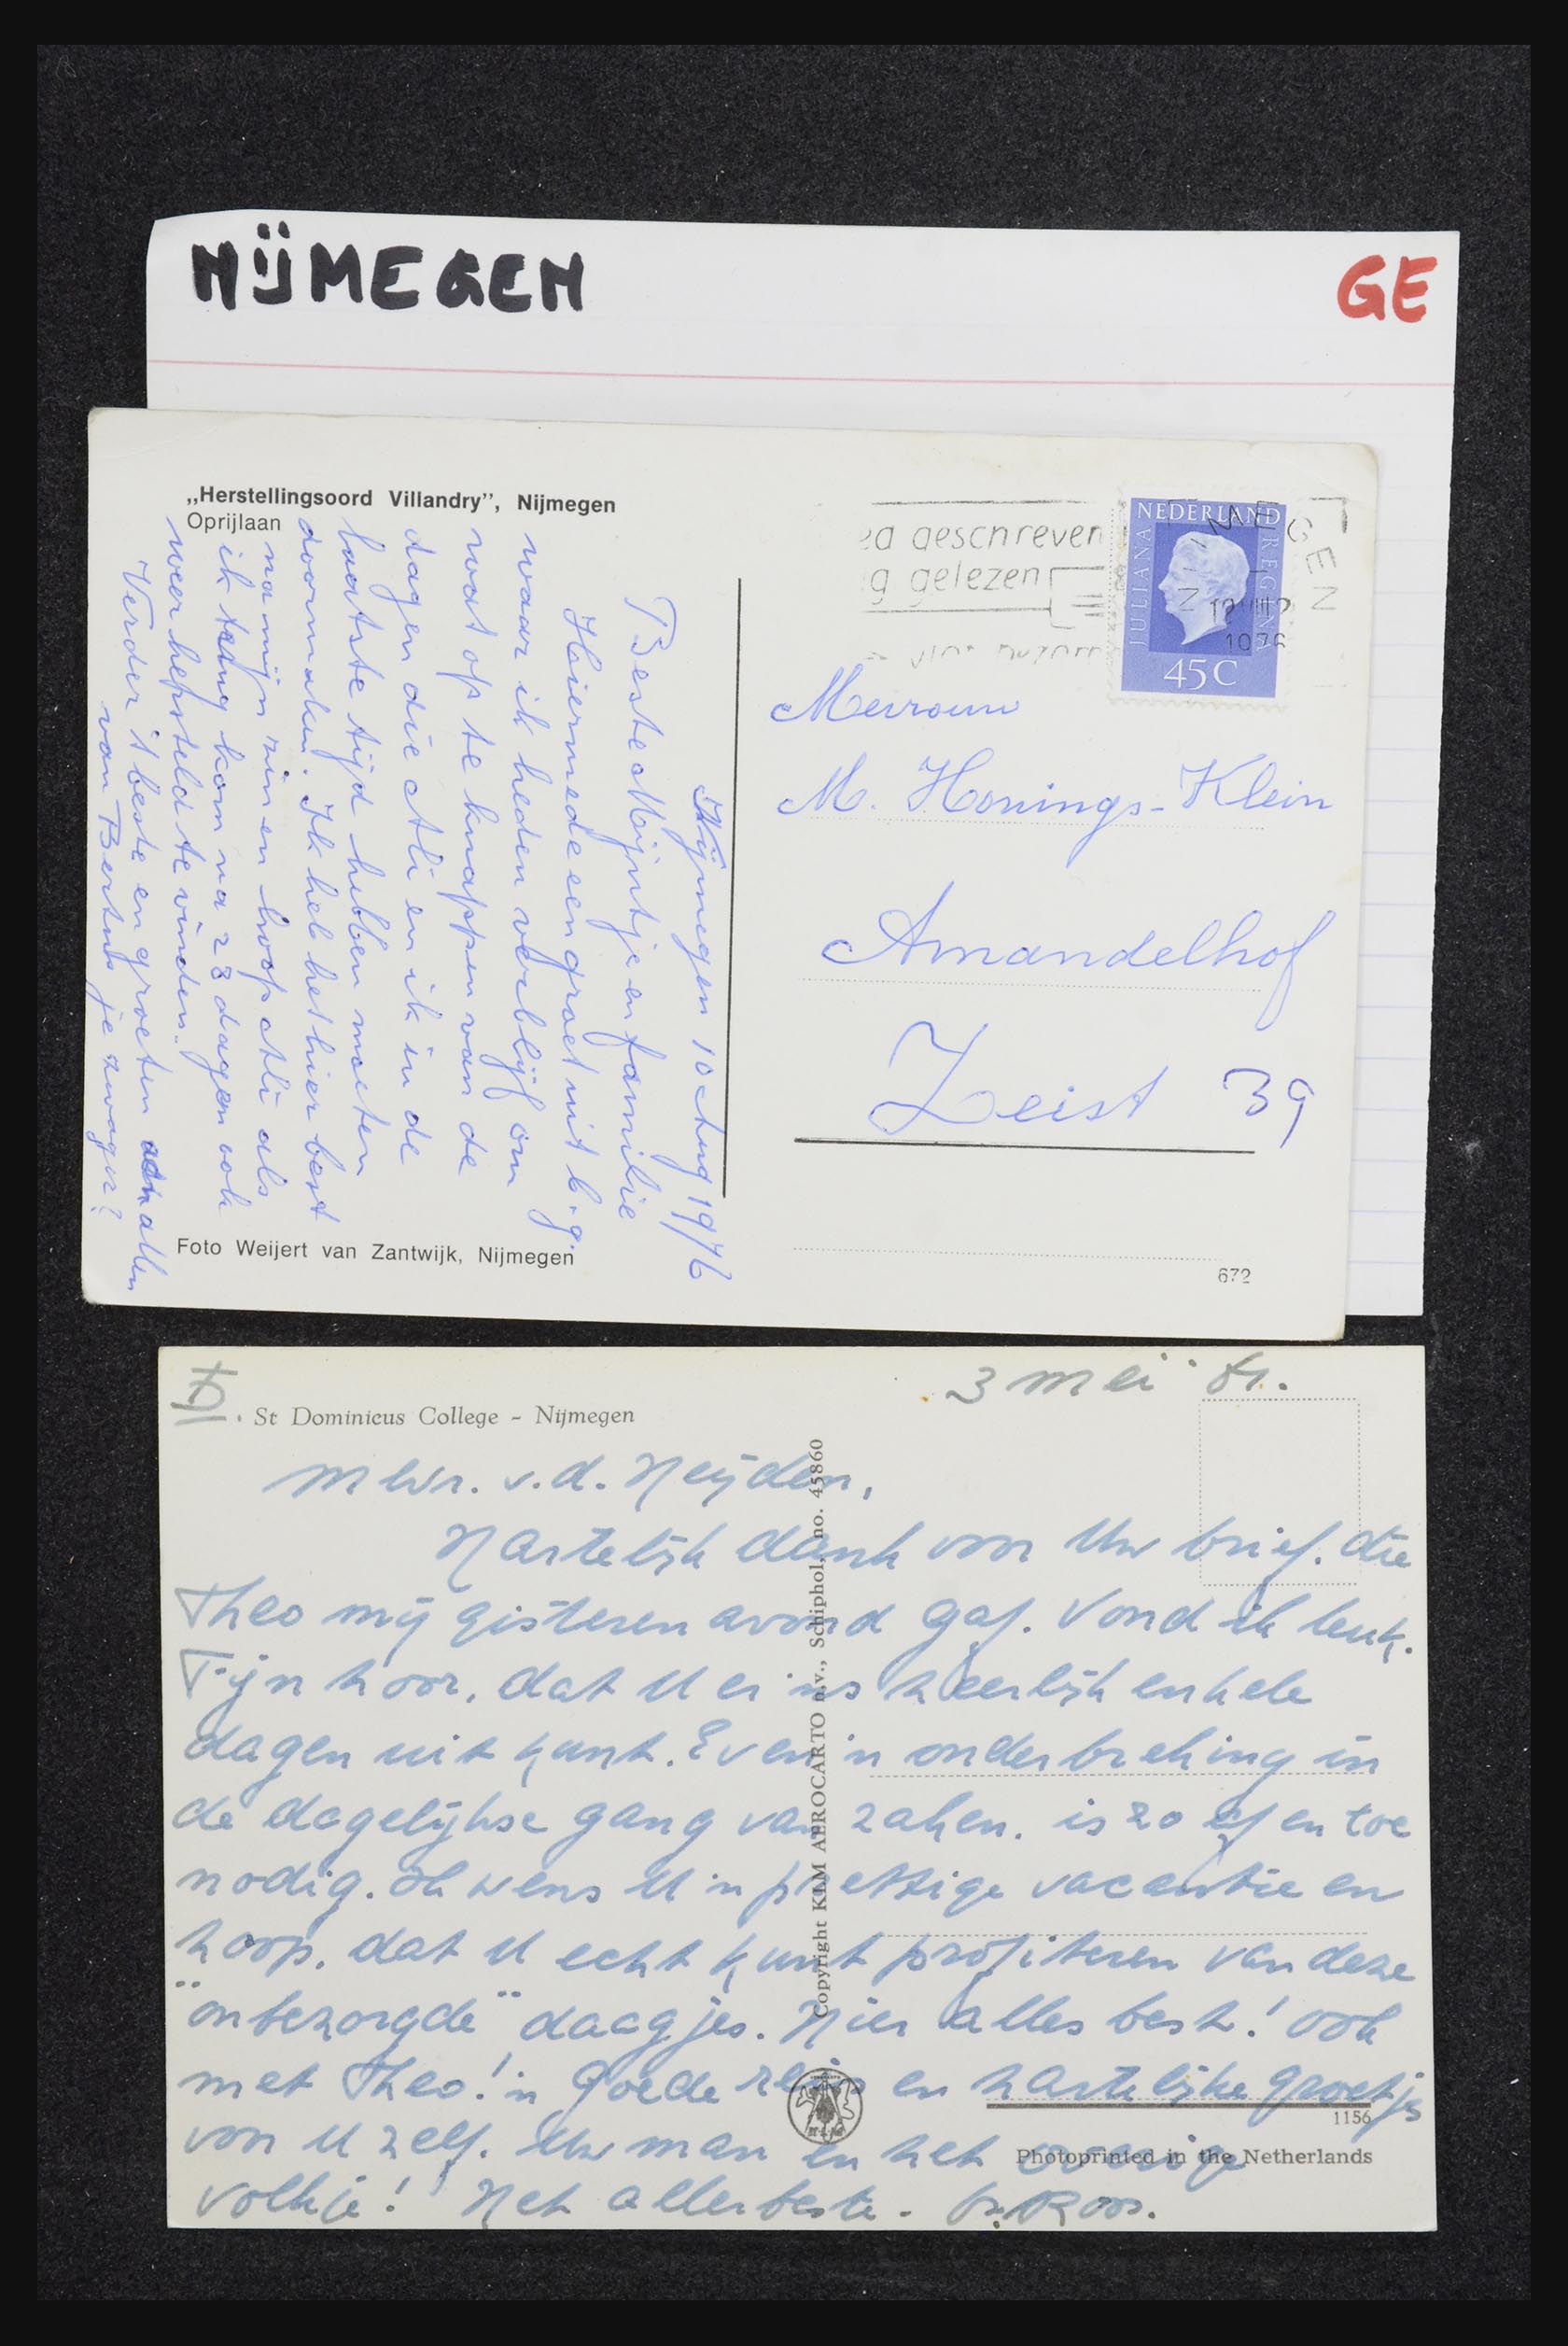 NIJMEGEN
GE
„Herstellingsoord Villandry”, Nijmegen
Oprijlaan
geschreven
gelezen
NEDERLAND
JULIANA REGINA
45C
NIJMEGEN
1976
Nijmegen 10 Aug 1976
Beste Mijntje en familie
Hiermede een groet uit b.g.
waar ik heden verblijf om
wat op te knappen van de
dagen die Atie en ik in de
laatste tijd hebben moeten
doormaken. Ik heb het hier best
na mijn zin en hoop Atie als
ik terug kom na 28 dagen ook
weer hersteld te vinden.
Verder 't beste en groeten aan allen
van Bertus je zwager!
Mevrouw
M. Honings-Klein
Amandelhof 39
Zeist
Foto Weijert van Zantwijk, Nijmegen
672
3 mei
St Dominicus College - Nijmegen
Mevr. v.d. Heijden,
Hartelijk dank voor Uw brief. die
Theo mij gisteren avond gaf. Vond ik leuk.
Fijn hoor, dat U er 'ns heerlijk enkele
dagen uit kunt. Even 'n onderbreking in
de dagelijkse gang van zaken. is zo af en toe
nodig. Ik wens U 'n prettige vacantie en
hoop, dat U echt kunt profiteren van deze
"onbezorgde" daagjes. Hier alles best! ook
met Theo! 'n Goede reis en hartelijke groetjes
von U zelf. Uw man en het overige
volkje! Het allerbeste. Roos.
Copyright KLM AEROCARTO n.v., Schiphol, no. 45860
1156
Photoprinted in the Netherlands